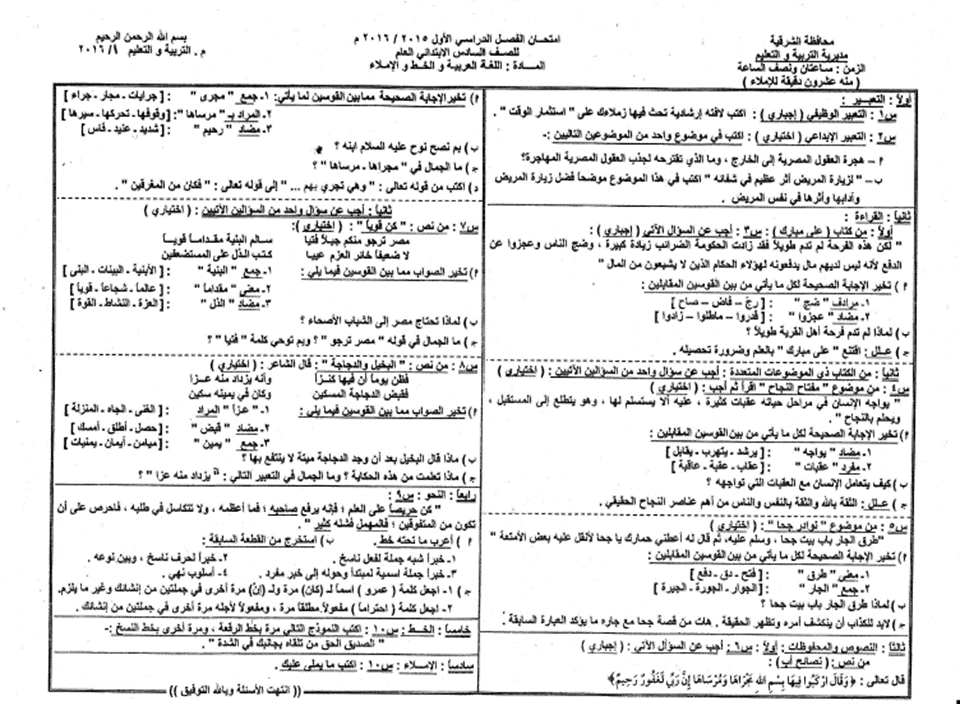 محافظة الشرقية
مديرية التربية و التعليم
الزمن : ساعتان ونصف الساعة
( منه عشرون دقيقة للإملاء )
امتحان الفصل الدراسي الأول ٢٠١٥ / ٢٠١٦ م
للصف السادس الابتدائي العام
المادة : اللغة العربية و الخط و الإملاء
بسم الله الرحمن الرحيم
م . التربية و التعليم ١/ ٢٠١٦
أولاً : التعبير :
س١ : التعبير الوظيفي ( إجباري ) : اكتب لافتة إرشادية تحث فيها زملاءك على " استثمار الوقت " .
س٢ : التعبير الإبداعي ( اختياري ) : اكتب في موضوع واحد من الموضوعين التاليين :-
أ – هجرة العقول المصرية إلى الخارج ، وما الذي تقترحه لجذب العقول المصرية المهاجرة؟
ب – " لزيارة المريض أثر عظيم في شفائه " اكتب في هذا الموضوع موضحاً فضل زيارة المريض
وآدابها وأثرها في نفس المريض .
ثانياً : القراءة :
أولاً : من كتاب ( على مبارك ) : س٣ : أجب عن السؤال الآتي ( إجباري ) :
" لكن هذه الفرحة لم تدم طويلاً فقد زادت الحكومة الضرائب زيادة كبيرة ، وضج الناس وعجزوا عن
الدفع لأنه ليس لديهم مال يدفعونه لهؤلاء الحكام الذين لا يشبعون من المال "
أ ) تخير الإجابة الصحيحة لكل ما يأتي من بين القوسين المقابلين :
١- مرادف " ضج " : [ رجّ – فاض – صاح ]
٢- مضاد " عجزوا " : [ قدروا – ماطلوا – زادوا ]
ب) لماذا لم تدم فرحة أهل القرية طويلاً ؟
جـ ) علل : اقتنع " على مبارك " بالعلم وضرورة تحصيله .
ثانياً : من الكتاب ذي الموضوعات المتعددة : أجب عن سؤال واحد من السؤالين الآتيين : ( اختياري )
س٤ : من موضوع " مفتاح النجاح " اقرأ ثم أجب : ( اختياري )
" يواجه الإنسان في مراحل حياته عقبات كثيرة ، عليه ألا يستسلم لها ، وهو يتطلع إلى المستقبل ،
ويحلم بالنجاح " .
أ) تخير الإجابة الصحيحة لكل ما يأتي من بين القوسين المقابلين :
١- مضاد " يواجه " : [ يرشد - يتهرب - يقابل ]
٢- مفرد " عقبات " : [ عقاب - عقبة - عاقبة ]
ب) كيف يتعامل الإنسان مع العقبات التي تواجهه ؟
جـ ) علل : الثقة بالله والثقة بالنفس والناس من أهم عناصر النجاح الحقيقي .
س٥ : من موضوع " نوادر جحا " : ( اختياري )
"طرق الجار باب بيت جحا ، وسلم عليه، ثم قال له أعطني حمارك يا جحا لأنقل عليه بعض الأمتعة "
أ) تخير الإجابة الصحيحة لكل ما يأتي من بين القوسين المقابلين :
١- معنى " طرق " : [ فتح - دق - دفع ]
٢- جمع " الجار " : [ الجوار - الجورة - الجيرة ]
ب) لماذا طرق الجار باب بيت جحا ؟
جـ ) لابد للكذاب أن ينكشف أمره وتظهر الحقيقة . هات من قصة جحا مع جاره ما يؤكد العبارة السابقة .
ثالثاً : النصوص والمحفوظات : أولاً : س٦ : أجب عن السؤال الآتي : ( إجباري )
من نص : ( نصائح أب ) :
قال تعالى : ﴿وَقَالَ ارْكَبُوا فِيهَا بِسْمِ اللَّهِ مَجْرَاهَا وَمُرْسَاهَا إِنَّ رَبِّي لَغَفُورٌ رَحِيمٌ﴾
أ) تخير الإجابة الصحيحة مما بين القوسين لما يأتي: ١- جمع " مجرى " : [ جرايات - مجار - جراء ]
٢- المراد بـ " مرساها ": [وقوفها - تحركها - سيرها ]
٣- مضاد " رحيم " : [ شديد - عنيد - قاس ]
ب) بم نصح نوح عليه السلام ابنه ؟
جـ) ما الجمال في " مجراها ـ مرساها " ؟
د) اكتب من قوله تعالى : " وهي تجري بهم ... " إلى قوله تعالى : " فكان من المغرقين " .
ثانياً : أجب عن سؤال واحد من السؤالين الآتيين : ( اختياري )
س٧ : من نص : " كن قوياً " : ( اختياري ):
مصر ترجو منكم جيلاً فتيا سالم البنية مقداماً قوياً
لا ضعيفاً خائر العزم عييا كتب الذل على المستضعفين
أ) تخير الصواب مما بين القوسين فيما يلي : ١- جمع " البنية " : [ الأبنية - البينات - البنى ]
٢- معنى " مقداماً " : [ عالماً - شجاعاً - قوياً ]
٣- مضاد " الذل " : [ العزة - النشاط - القوة ]
ب) لماذا تحتاج مصر إلى الشباب الأصحاء ؟
جـ) ما الجمال في قوله " مصر ترجو " ؟ وبم توحي كلمة " فتيا " ؟
س٨ : من نص : " البخيل والدجاجة " : قال الشاعر : ( اختياري )
فظن يوماً أن فيها كنزاً وأنه يزداد منه عزا
فقبض الدجاجة المسكين وكان في يمينه سكين
أ) تخير الصواب مما بين القوسين فيما يلي : ١- " عزاً " المراد : [ الغنى - الجاه - المنزلة ]
٢- مضاد " قبض " : [ حصل - أطلق - أمسك ]
٣- جمع " يمين " : [ ميامن - أيمان - يمنيات ]
ب) ماذا قال البخيل بعد أن وجد الدجاجة ميتة لا ينتفع بها ؟
جـ) ماذا تعلمت من هذه الحكاية ؟ وما الجمال في التعبير التالي : " يزداد منه عزا " ؟
رابعاً : النحو : س٩ :
" كن حريصاً على العلم ؛ فإنه يرفع صاحبه ؛ فما أعظمه ، ولا تتكاسل في طلبه ، فاحرص على أن
تكون من المتفوقين ؛ فالمهمل فشله كثير " .
أ ) أعرب ما تحته خط . ب) استخرج من القطعة السابقة :
١- خبراً شبه جملة لفعل ناسخ . ٢- خبراً لحرف ناسخ ، وبين نوعه .
٣- خبراً جملة اسمية لمبتدأ وحوله إلى خبر مفرد . ٤- أسلوب نهي .
جـ ) ١- اجعل كلمة ( عمرو ) اسماً لـ (كان) مرة ولـ (إنّ) مرة أخرى في جملتين من إنشائك وغير ما يلزم.
٢- اجعل كلمة ( احتراما ) مفعولاً مطلقاً مرة ، ومفعولاً لأجله مرة أخرى في جملتين من إنشائك .
خامساً : الخط : س١٠ : اكتب النموذج التالي مرة بخط الرقعة ، ومرة أخرى بخط النسخ :-
" الصديق الحق من تلقاه بجانبك في الشدة " .
سادساً : الإملاء : س١٠ : اكتب ما يملى عليك .
(( انتهت الأسئلة وبالله التوفيق ))